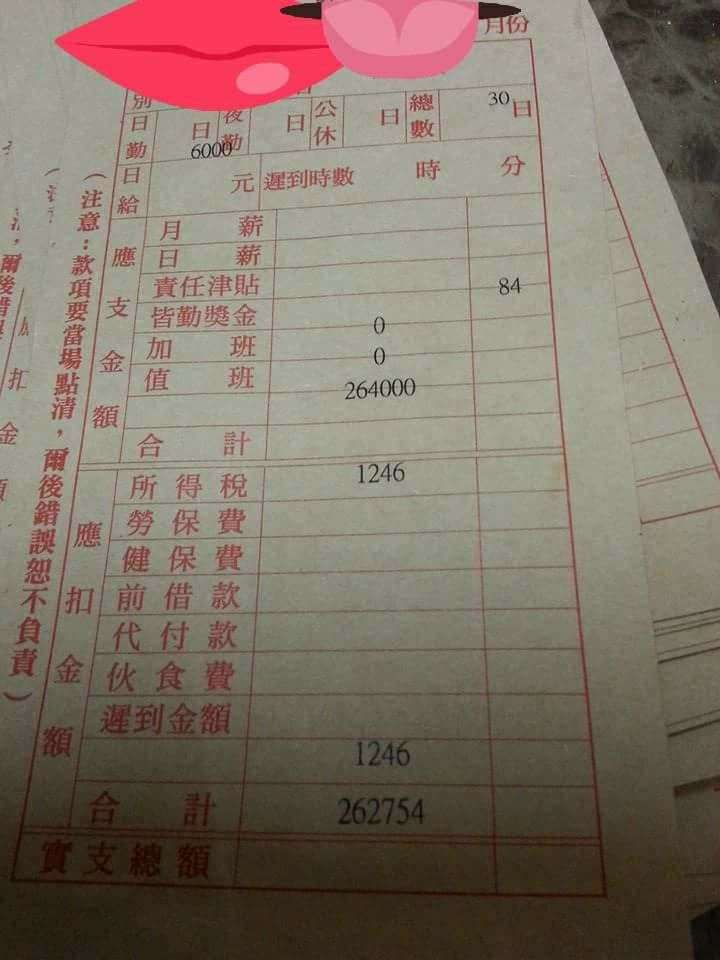 月份
別
日勤 日 夜勤 日 公休 日 總數 30 日
6000
日給 元 遲到時數 時 分
應支金額
月薪
日薪
責任津貼 84
皆勤獎金 0
加班 0
值班 264000
合計
應扣金額
所得稅 1246
勞保費
健保費
前借款
代付款
伙食費
遲到金額
1246
合計 262754
實支總額
(注意：款項要當場點清，爾後錯誤恕不負責)
爾後錯
扣
金